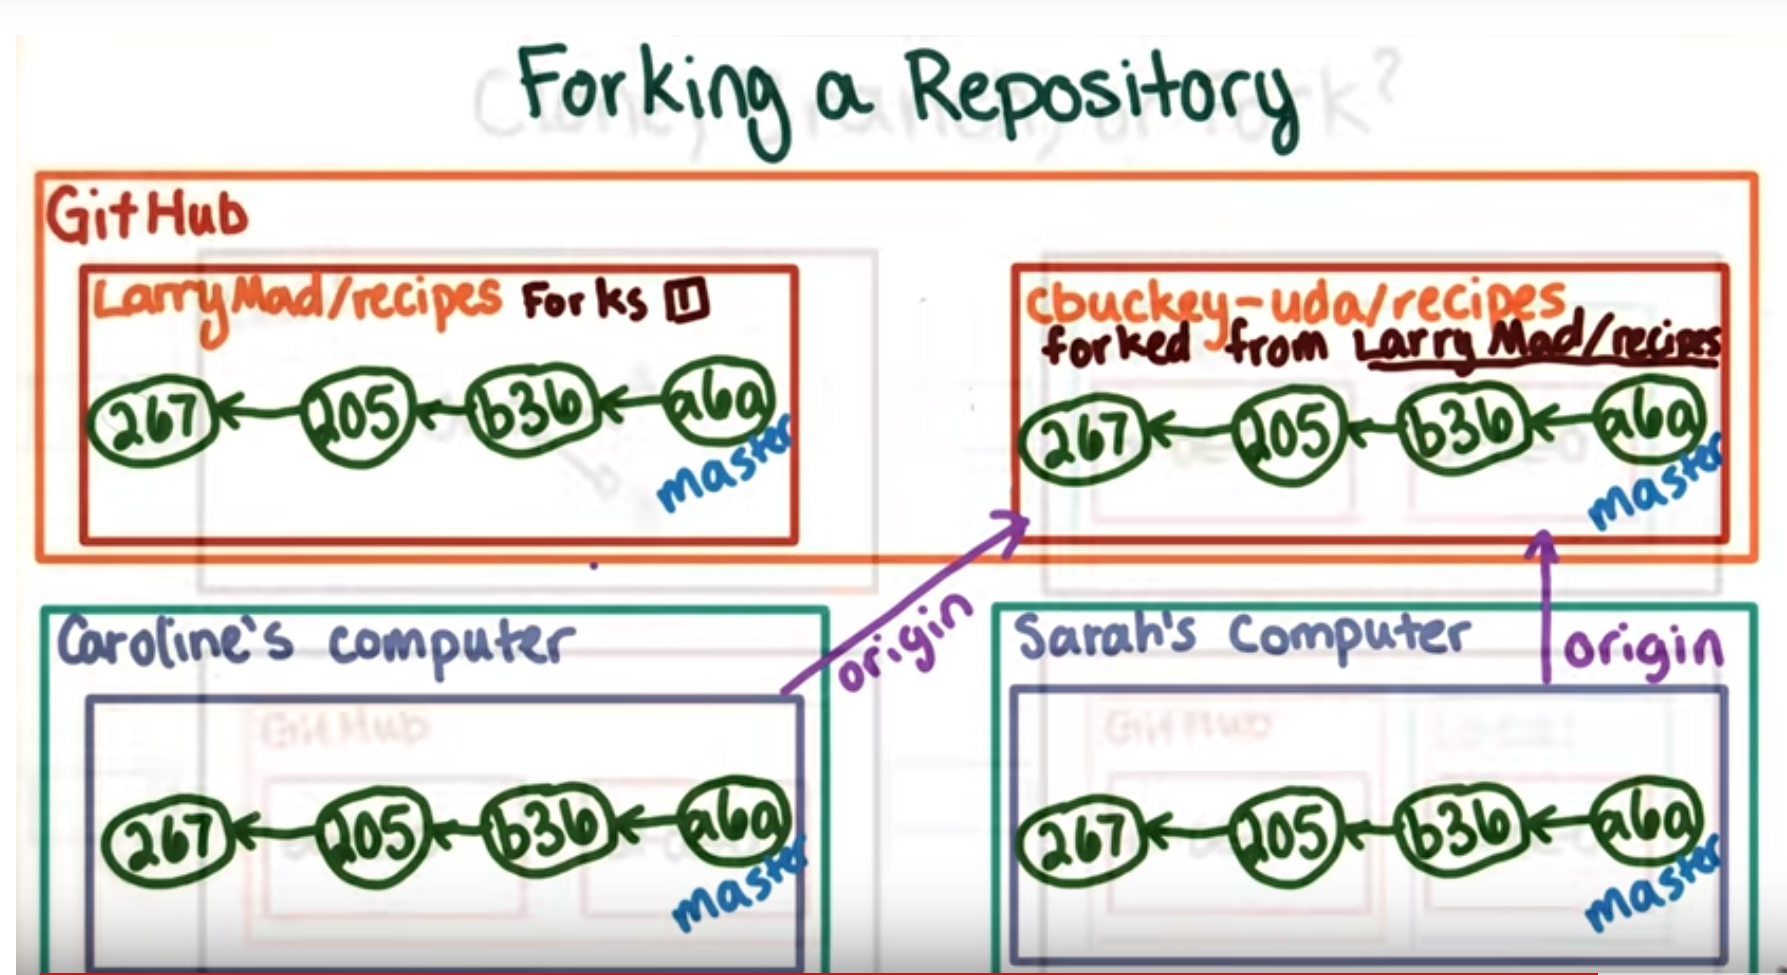 Forking a Repository
GitHub
LarryMad/recipes Forks 1
267 205 b36 a6a
master
cbuckey-uda/recipes
forked from Larry Mad/recipes
267 205 b36 a6a
master
origin
origin
Caroline's computer
267 205 b36 a6a
master
Sarah's Computer
267 205 b36 a6a
master
GitHub
GitHub